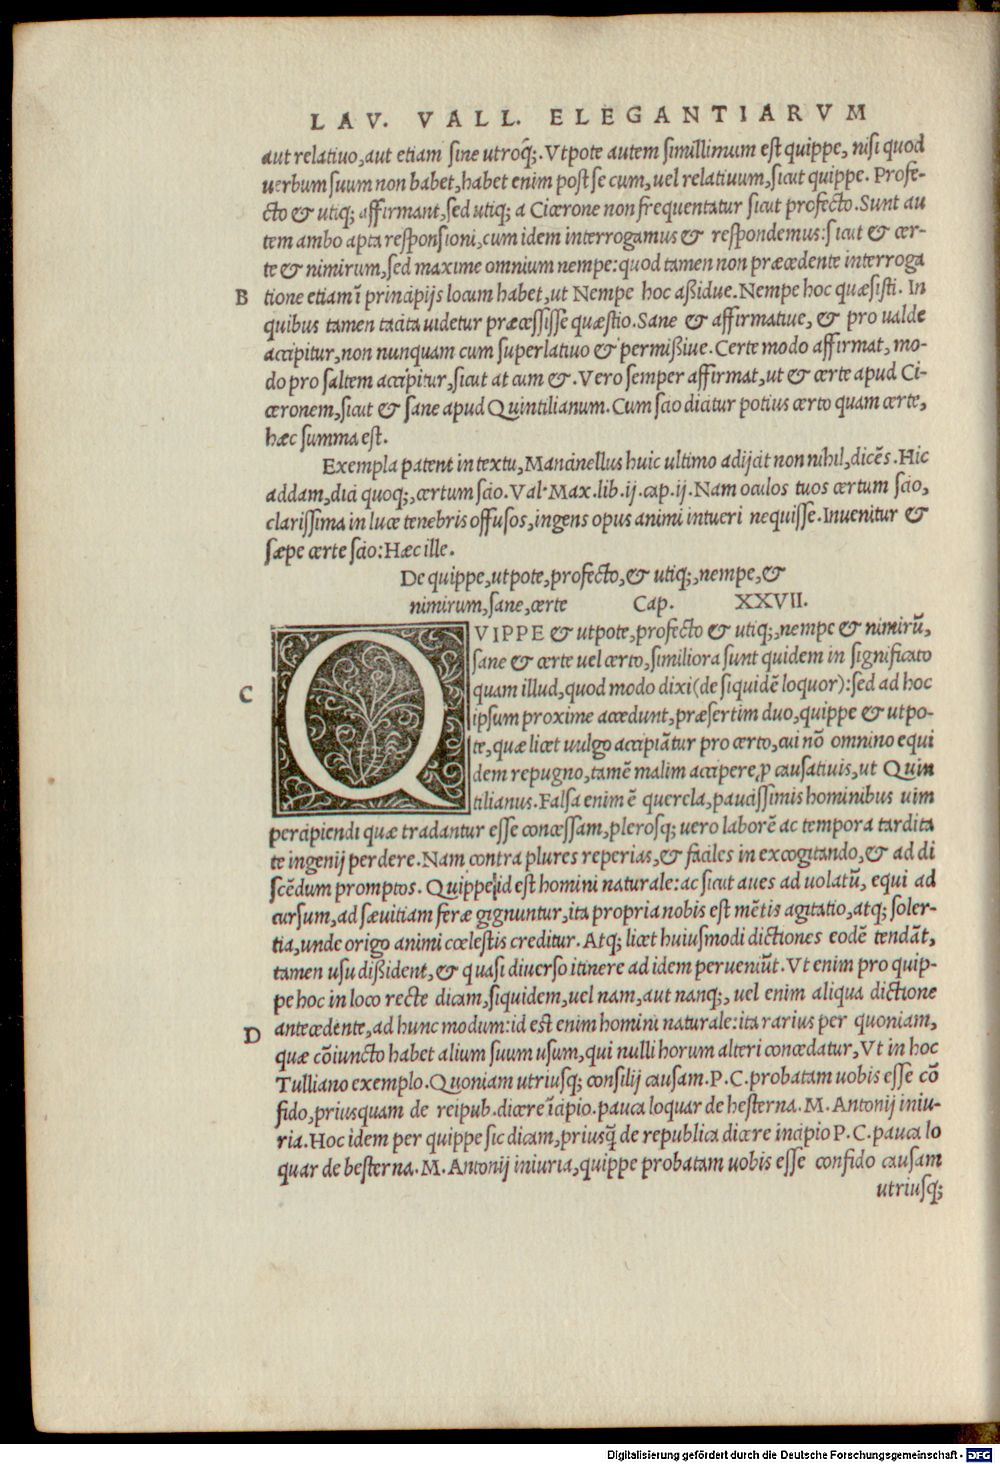 LAV. VALL. ELEGANTIARVM
aut relatiuo, aut etiam sine utroq̃;. Vtpote autem simillimum est quippe, nisi quod
uerbum suum non habet, habet enim post se cum, uel relatiuum, sicut quippe. Profe-
cto & utiq; affirmant, sed utiq; a Cicerone non frequentatur sicut profecto. Sunt au
tem ambo apta responsioni, cum idem interrogamus & respondemus: sicut & cer-
te & nimirum, sed maxime omnium nempe: quod tamen non præcedente interroga
B tione etiam ī principijs locum habet, ut Nempe hoc aßidue. Nempe hoc quæsisti. In
quibus tamen tacita uidetur præcessisse quæstio. Sane & affirmatiue, & pro ualde
accipitur, non nunquam cum superlatiuo & permißiue. Certe modo affirmat, mo-
do pro saltem accipitur, sicut at cum &. Vero semper affirmat, ut & certe apud Ci-
ceronem, sicut & sane apud Quintilianum. Cum scio dicitur potius certo quam certe,
hæc summa est.
Exempla patent in textu, Mancinellus huic ultimo adijcit non nihil, dicēs. Hic
addam, dici quoq;, certum scio. Val. Max. lib. ij. cap. ij. Nam oculos tuos certum scio,
clarissima in luce tenebris offusos, ingens opus animi intueri nequisse. Inuenitur &
sæpe certe scio: Hæc ille.
De quippe, utpote, profecto, & utiq;, nempe, &
nimirum, sane, certe Cap. XXVII.
QVIPPE & utpote, profecto & utiq;, nempe & nimirū,
sane & certe uel certo, similiora sunt quidem in significato
C quam illud, quod modo dixi (de siquidē loquor): sed ad hoc
ipsum proxime accedunt, præsertim duo, quippe & utpo-
te, quæ licet uulgo accipiātur pro certo, cui nō omnino equi
dem repugno, tamē malim accipere ꝓ causatiuis, ut Quin
tilianus. Falsa enim ē querela, paucissimis hominibus uim
percipiendi quæ tradantur esse concessam, plerosq; uero laborē ac tempora tardita
te ingenij perdere. Nam contra plures reperias, & faciles in excogitando, & ad di
scēdum promptos. Quippe id est homini naturale: ac sicut aues ad uolatū, equi ad
cursum, ad sæuitiam feræ gignuntur, ita propria nobis est mētis agitatio, atq; soler-
tia, unde origo animi cœlestis creditur. Atq; licet huiusmodi dictiones eodē tendāt,
tamen usu dißident, & quasi diuerso itinere ad idem perueniūt. Vt enim pro quip-
pe hoc in loco recte dicam, siquidem, uel nam, aut nanq;, uel enim aliqua dictione
D antecedente, ad hunc modum: id est enim homini naturale: ita rarius per quoniam,
quæ cōiuncto habet alium suum usum, qui nulli horum alteri concedatur, Vt in hoc
Tulliano exemplo. Quoniam utriusq; consilij causam. P. C. probatam uobis esse cō
fido, priusquam de reipub. dicere īcipio. pauca loquar de hesterna. M. Antonij iniu-
ria. Hoc idem per quippe sic dicam, priusq̄ de republica dicere incipio P. C. pauca lo
quar de hesterna. M. Antonij iniuria, quippe probatam uobis esse confido causam
utriusq;
Digitalisierung gefördert durch die Deutsche Forschungsgemeinschaft - DFG